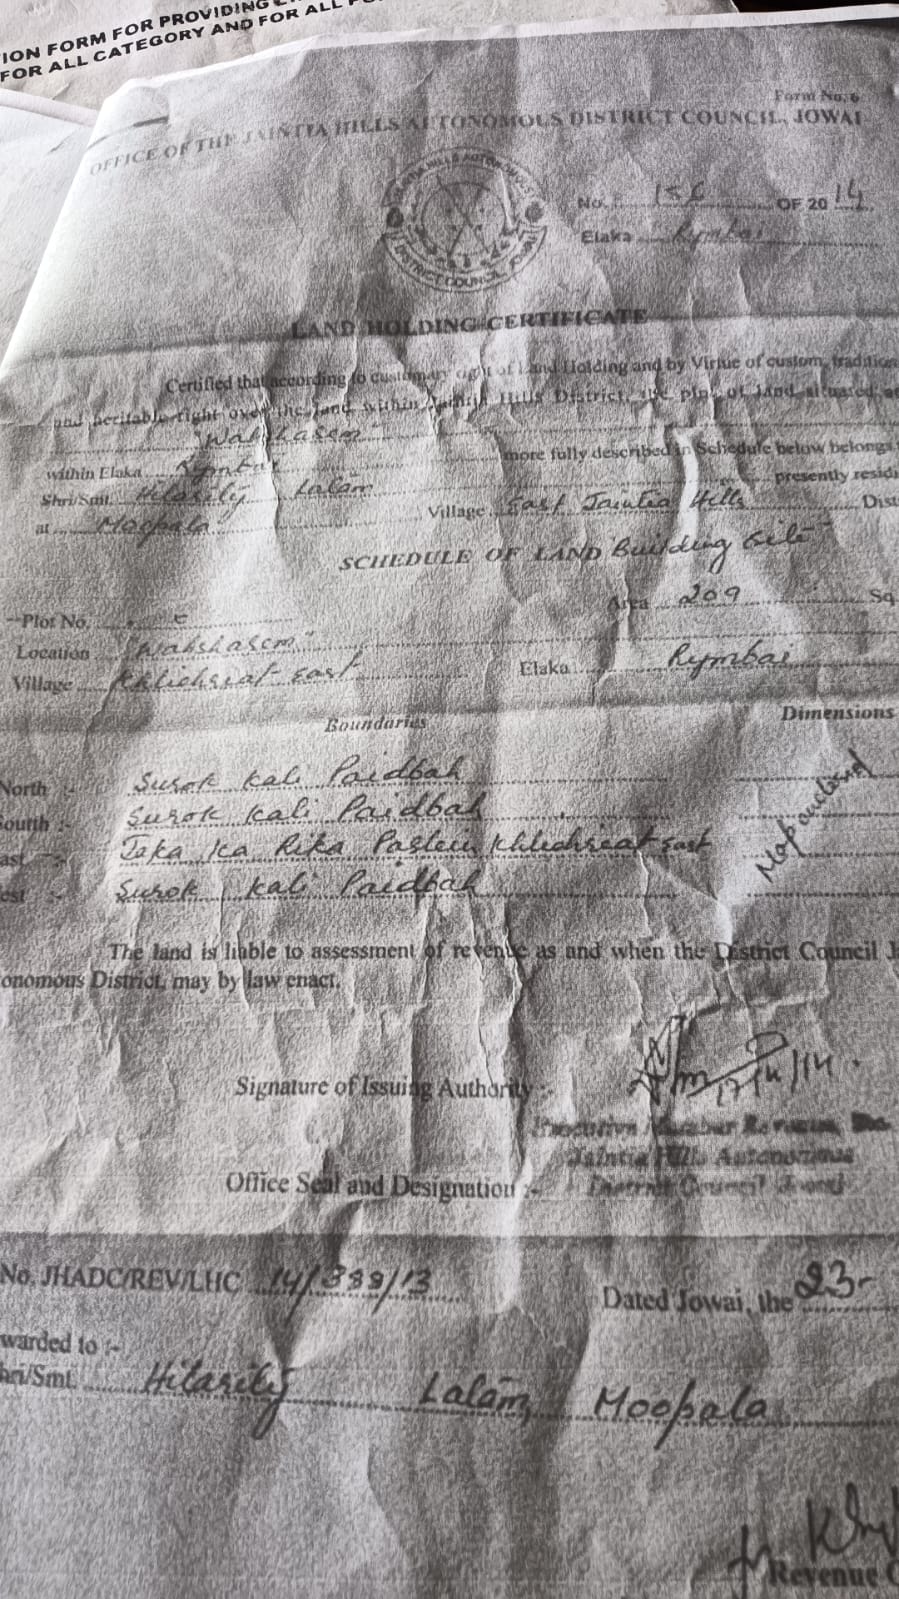 ION FORM FOR PROVIDING
FOR ALL CATEGORY AND FOR ALL
Form No. 6
OFFICE OF THE JAINTIA HILLS AUTONOMOUS DISTRICT COUNCIL, JOWAI
DISTRICT COUNCIL JOWAI
No. OF 2014
Elaka Rymbai
LAND HOLDING CERTIFICATE
Certified that according to customary right of Land Holding and by Virtue of custom, tradition
and heritable right over the land within Jaintia Hills District, the plot of land situated at
"Wahshasem"
within Elaka Rymbai more fully described in Schedule below belongs
Shri/Smt. Hilarity Lalam presently resid
at Moopala Village East Jaintia Hills Dist
SCHEDULE OF LAND "Building Site"
Plot No. Area 209 Sq
Location "Wahshasem"
Village Khliehriat East Elaka Rymbai
Boundaries Dimensions
North :- Surok kali Paidbah
South :- Surok kali Paidbah
ast :- Jaka Ka Rika Paslein Khliehriat East
est :- Surok kali Paidbah
Map enclosed
The land is liable to assessment of revenue as and when the District Council J
onomous District, may by law enact.
Signature of Issuing Authority :-
17/4/14
Executive Member Revenue,
Jaintia Hills Autonomous
Office Seal and Designation :- District Council Jowai
No. JHADC/REV/LHC 14/389/13 Dated Jowai, the 23-
warded to :-
hri/Smt. Hilarity Lalam, Moopala
Revenue